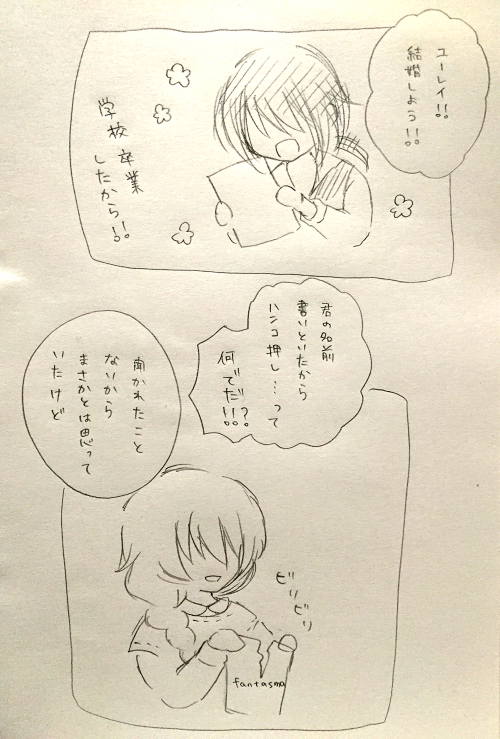 ユーレイ!!
結婚しよう!!
学校卒業
したから!!
君の名前
書いといたから
ハンコ押し…って
何でだ!!?
聞かれたこと
ないから
まさかとは思って
いたけど
ビリビリ
fantasma